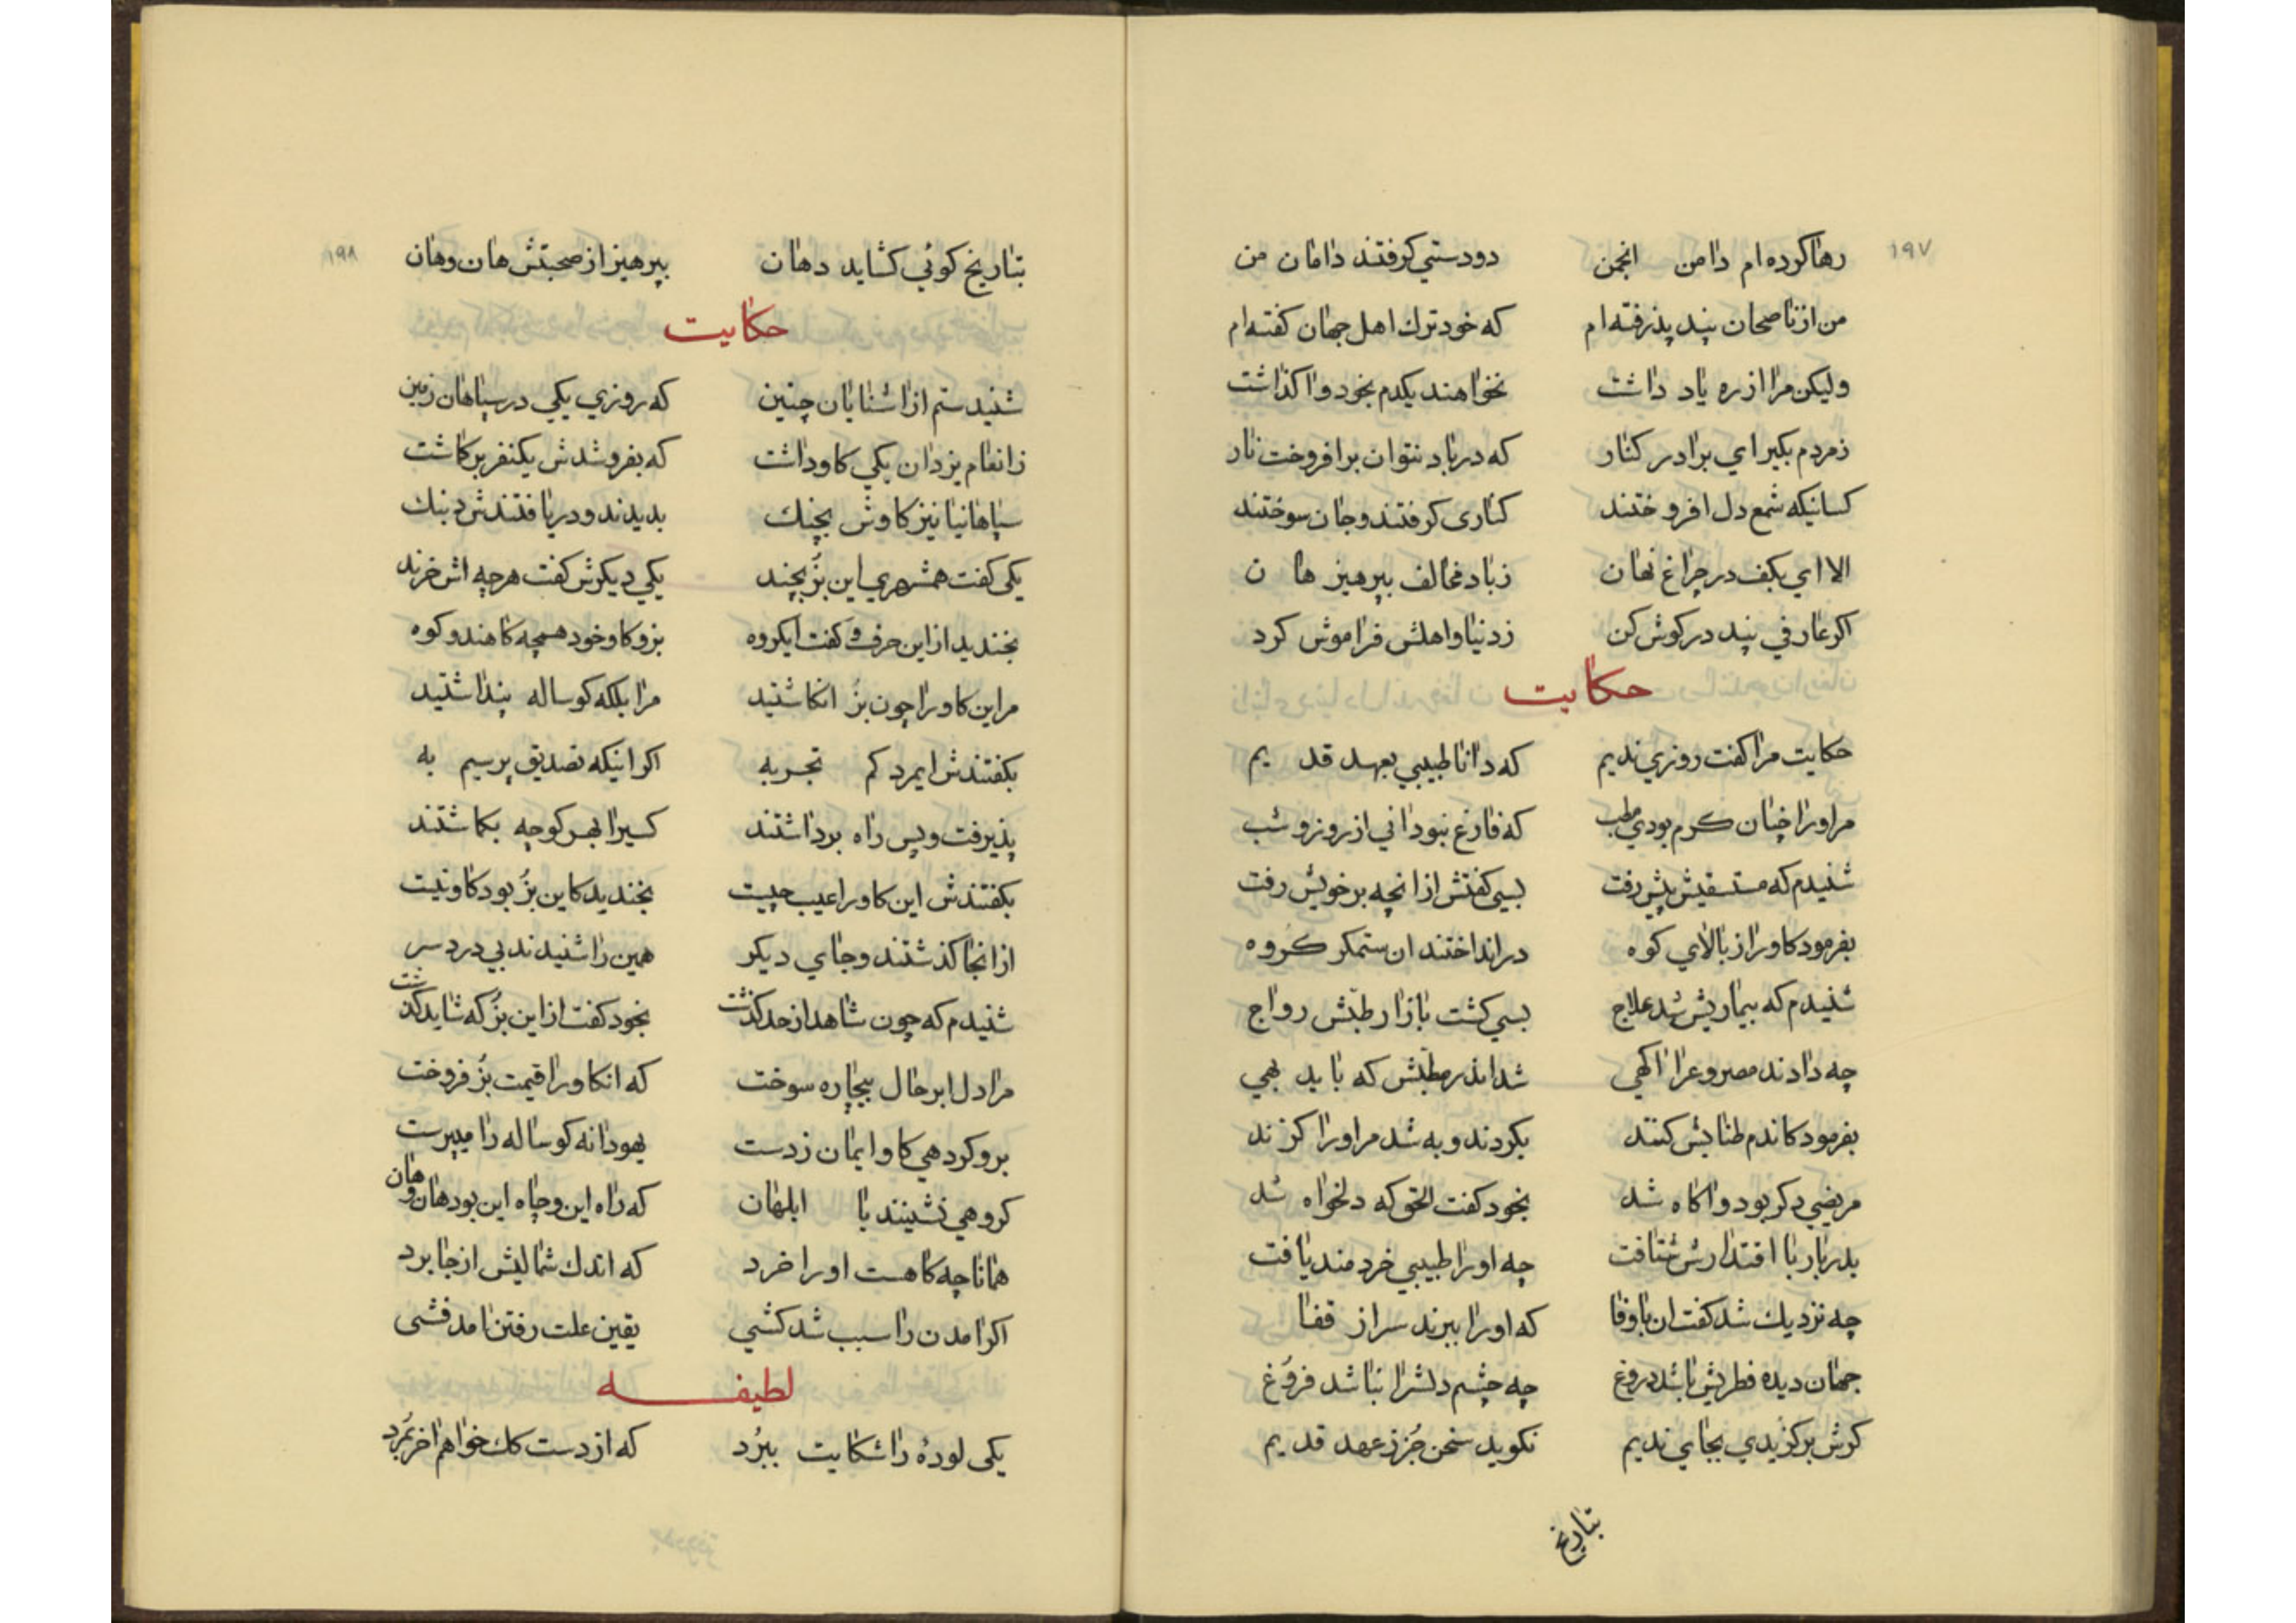 ۱۹۷
رها کرده ام دامن انجمن دو دستی کرفتند دامان من
من از ناصحان پند پذرفته ام که خود ترك اهل جهان کفته ام
ولیکن مرا از ره یاد داشت نخواهند یکدم بخود واکذاشت
زمردم بکیر ای برادر کنار که در باد نتوان برافروخت نار
کسانیکه شمع دل افروختند کناری کرفتند و جان سوختند
الا ای بکف در چراغ نهان زباد مخالف بپرهیز هان
اکر عارفی پند در کوش کن زدنیا و اهلش فراموش کرد
حکایت
حکایت مرا کفت روزی ندیم که دانا طبیبی بعهد قدیم
مر اورا چنان کرم بودی مطب که فارغ نبود انی از روز و شب
شنیدم که مستسقیش پیش رفت بسی کفتش از انچه بر خویش رفت
بفرمود کاورا ز بالای کوه در انداختند ان ستمکر کروه
شنیدم که بیماریش شد علاج بسی کشت بازار طبش رواج
چه دادند مصروعرا اکهی شد اندر مطبش که باید بهی
بفرمود کاندم طنابش کنند بکردند و به شد مر اورا کزند
مریضی دکر بود و اکاه شد بخود کفت الحق که دلخواه شد
بدربار با اقتدارش شتافت چه اورا طبیبی خردمند یافت
چه نزدیك شد کفت ان باوفا که اورا ببرند سر از قفا
جهان دیده فطریش باشد دروغ چه چشم دلشرا نباشد فروغ
کرش برکزیدی بجای ندیم نکوید سخن جز زعهد قدیم
بتاریخ
۱۹۸
بتاریخ کوئی کشاید دهان بپرهیز از صحبتش هان و هان
حکایت
شنیدستم از اشنایان چنین که روزی یکی در سپاهان زمین
ز انعام یزدان یکی کاو داشت که بفروشدش یکنفر برکاشت
سپاهانیا نیز کاوش بچنك بدیدند و دریافتندش دبنك
یکی کفت همشهری این بز بچند یکی دیکرش کفت هرچه اش خرند
بخندید از این حرف و کفت ایکروه بز و کاو خود همچه کاهند و کوه
مر این کاورا چون بز انکاشتید مرا بلکه کوساله پنداشتید
بکفتندش ایمرد کم تجربه اکر اینکه تصدیق پرسیم به
پذیرفت و پس راه برداشتند کسیرا بهر کوچه بکماشتند
بکفتندش این کاورا عیب چیست بخندید کاین بز بود کاو نیست
از انجا کذشتند و جای دیکر همین را شنیدند بی درد سر
شنیدم که چون شاهد از حد کذشت بخود کفت از این بز که شاید کذشت
مرا دل ابر حال بیچاره سوخت که انکاورا قیمت بز فروخت
برو کردهی کاو ایمان زدست یهودانه کوساله را میپرست
کروهی نشینند با ابلهان که راه این و چاه این بود هان و هان
همانا چه کاهست اورا خرد که اندك شمالیش از جا برد
اکر امدن را سبب شد کشی یقین علت رفتن امد فشی
لطیفه
یکی لودهٔ را شکایت ببرد که از دست کك خواهم اخر بمرد